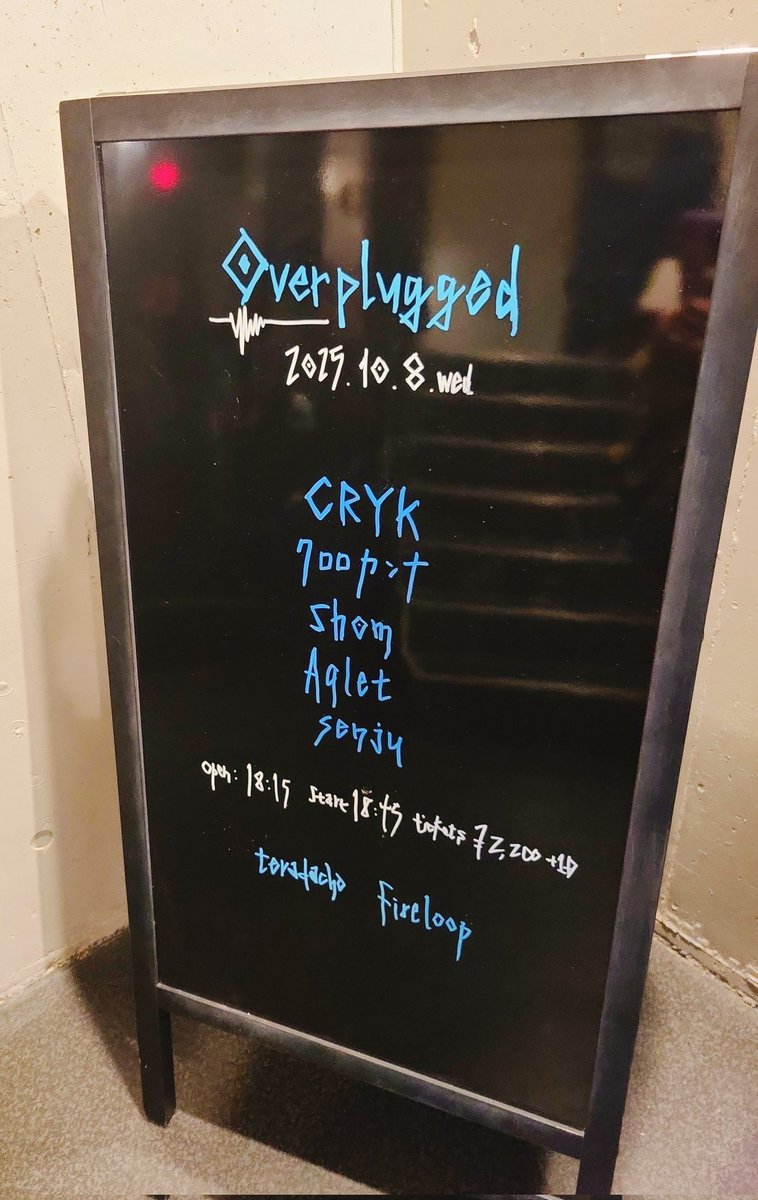 Overplugged
2025.10.8.wed
CRYK
クロロカンナ
shom
Aglet
senju
open: 18:15 start 18:45 tickets ¥2,200+1D
teradacho fireloop